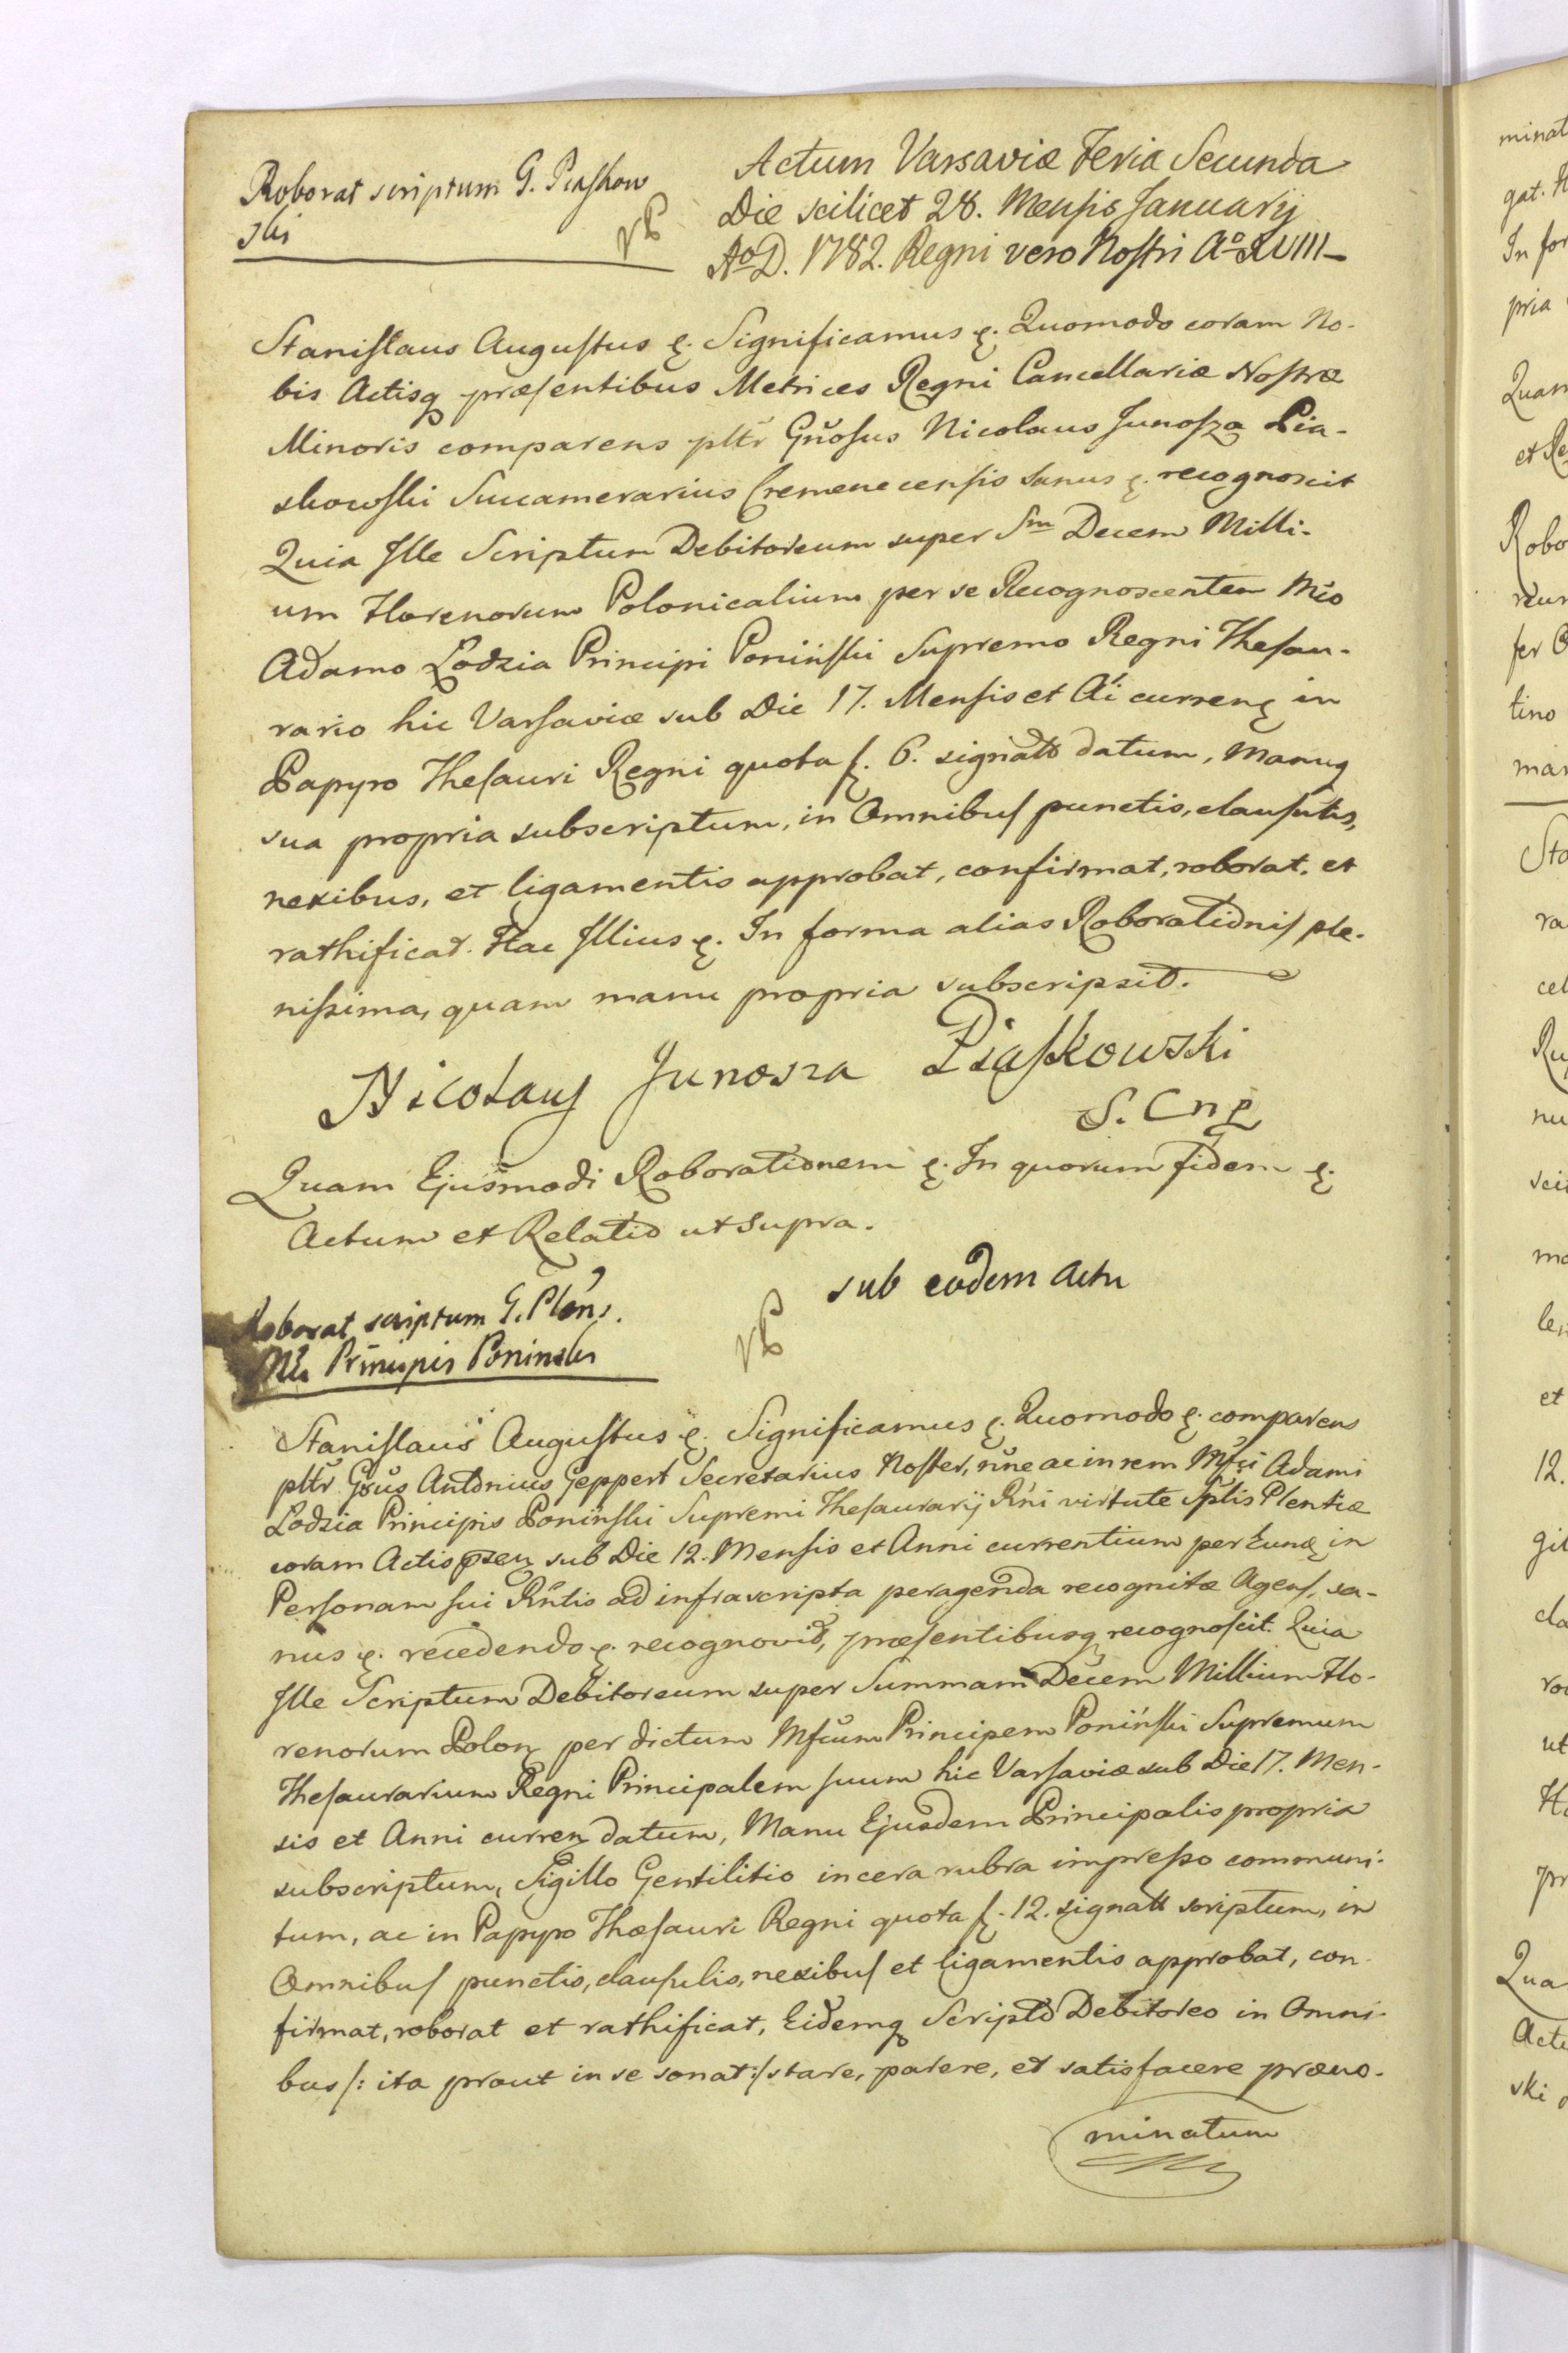 Roborat scriptum G. Piaskow
ski
Actum Varsaviæ Feria Secunda
Die scilicet 28. Mensis Januarij
Aº D. 1782. Regni vero Nostri Aº XVIII
Stanislaus Augustus ę. Significamus ę. Quomodo coram No-
bis Actisq præsentibus Metrices Regni Cancellariæ Nostræ
Minoris comparens pltr Gnosus Nicolaus Junosza Pia-
skowski Succamerarius Cremenecensis sanus ę. recognoscit
Quia Ille Scriptum Debitoreum super Sm Decem Milli-
um Florenorum Polonicalium per se Recognoscentem Mco
Adamo Lodzia Principi Poniński Supremo Regni Thesau-
rario hic Varsaviæ sub Die 17. Mensis et Ai curren in
Papyro Thesauri Regni quota f. 6. signatto datum, Manuq
sua propria subscriptum, in Omnibus punctis, clausulis,
nexibus, et ligamentis approbat, confirmat, roborat, et
rathificat. Hac Illius ę. In forma alias Roborationis ple-
nissima, quam manu propria subscripsit.
Nicolaus Junosza Piaskowski
S. Cnę
Quam Ejusmodi Roborationem ę. In quorum fidem ę.
Actum et Relatio ut supra.
sub eodem Actu
Roborat scriptum G. Plens.
Mci Principis Poninski
Stanislaus Augustus ę. Significamus ę. Quomodo ę. comparens
pltr Gsus Antonius Geppert Secretarius Noster, nne ac in rem Mfci Adami
Lodzia Principis Poniński Supremi Thesaurarij Rni virtute Splis Plentiæ
coram Actis pzen sub Die 12. Mensis et Anni currentium per Eund in
Personam sui Rntis ad infrascripta peragenda recognitæ Agens, sa-
nus ę. recedendo ę. recognovit, præsentibusq recognoscit. Quia
Ille Scriptum Debitoreum super Summam Decem Millium Flo-
renorum Polon per dictum Mfcum Principem Poniński Supremum
Thesaurarium Regni Principalem suum hic Varsaviæ sub Die 17. Men-
sis et Anni curren datum, Manu Ejusdem Principalis propria
subscriptum, Sigillo Gentilitio in cera rubra impresso communi-
tum, ac in Papyro Thæsauri Regni quota f. 12. signatt scriptum, in
Omnibus punctis, clausulis, nexibus et ligamentis approbat, con-
firmat, roborat et rathificat, Eidemq Scripto Debitoreo in Omni-
bus /: ita prout in se sonat :/ stare, parere, et satisfacere præno-
minatum